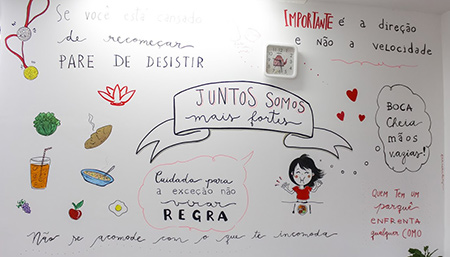 Se você está cansado
de recomeçar
PARE DE DESISTIR
IMPORTANTE é a direção
e não a velocidade
JUNTOS SOMOS
mais fortes
BOCA
Cheia
mãos
vazias!
Cuidado para
a exceção não
virar
REGRA
QUEM TEM UM
porquê
ENFRENTA
qualquer COMO
Não se acomode com o que te incomoda